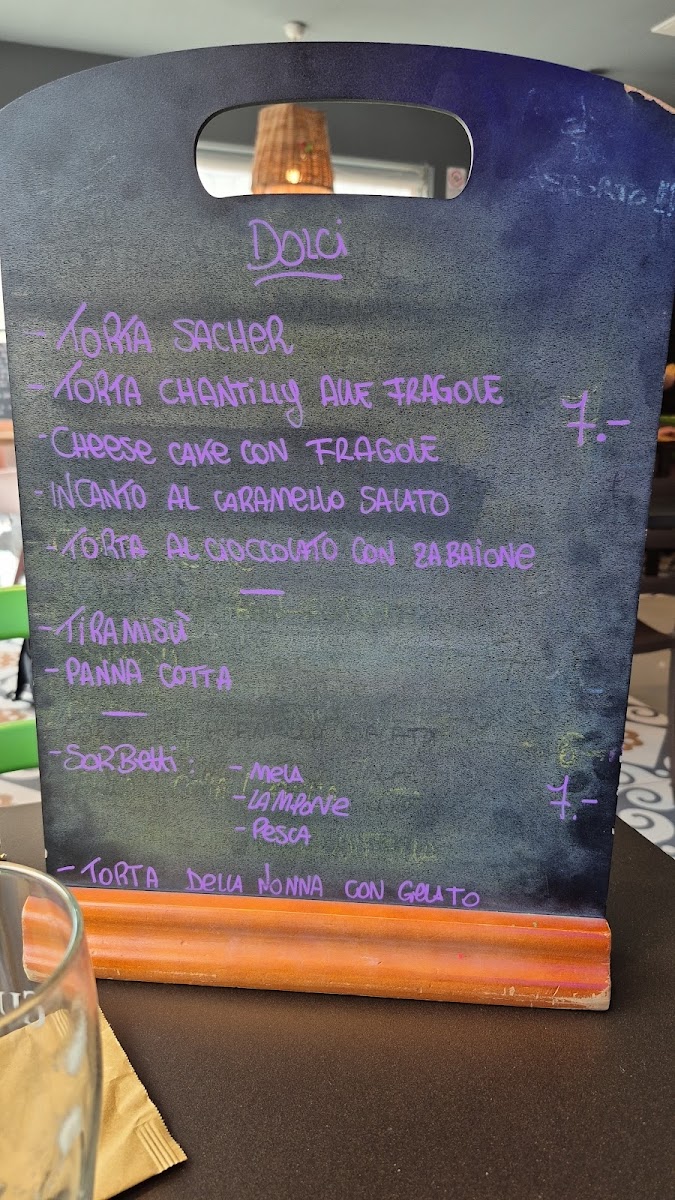 DOLCi
- TORTA SACHER
- TORTA CHANTILLY ALLE FRAGOLE 7.-
- CHEESE CAKE CON FRAGOLE
- INCANTO AL CARAMELLO SALATO
- TORTA AL CIOCCOLATO CON ZABAIONE
- TIRAMISÙ
- PANNA COTTA
- SORBETTI : - MELA
- LAMPONE 7.-
- PESCA
- TORTA DELLA NONNA CON GELATO